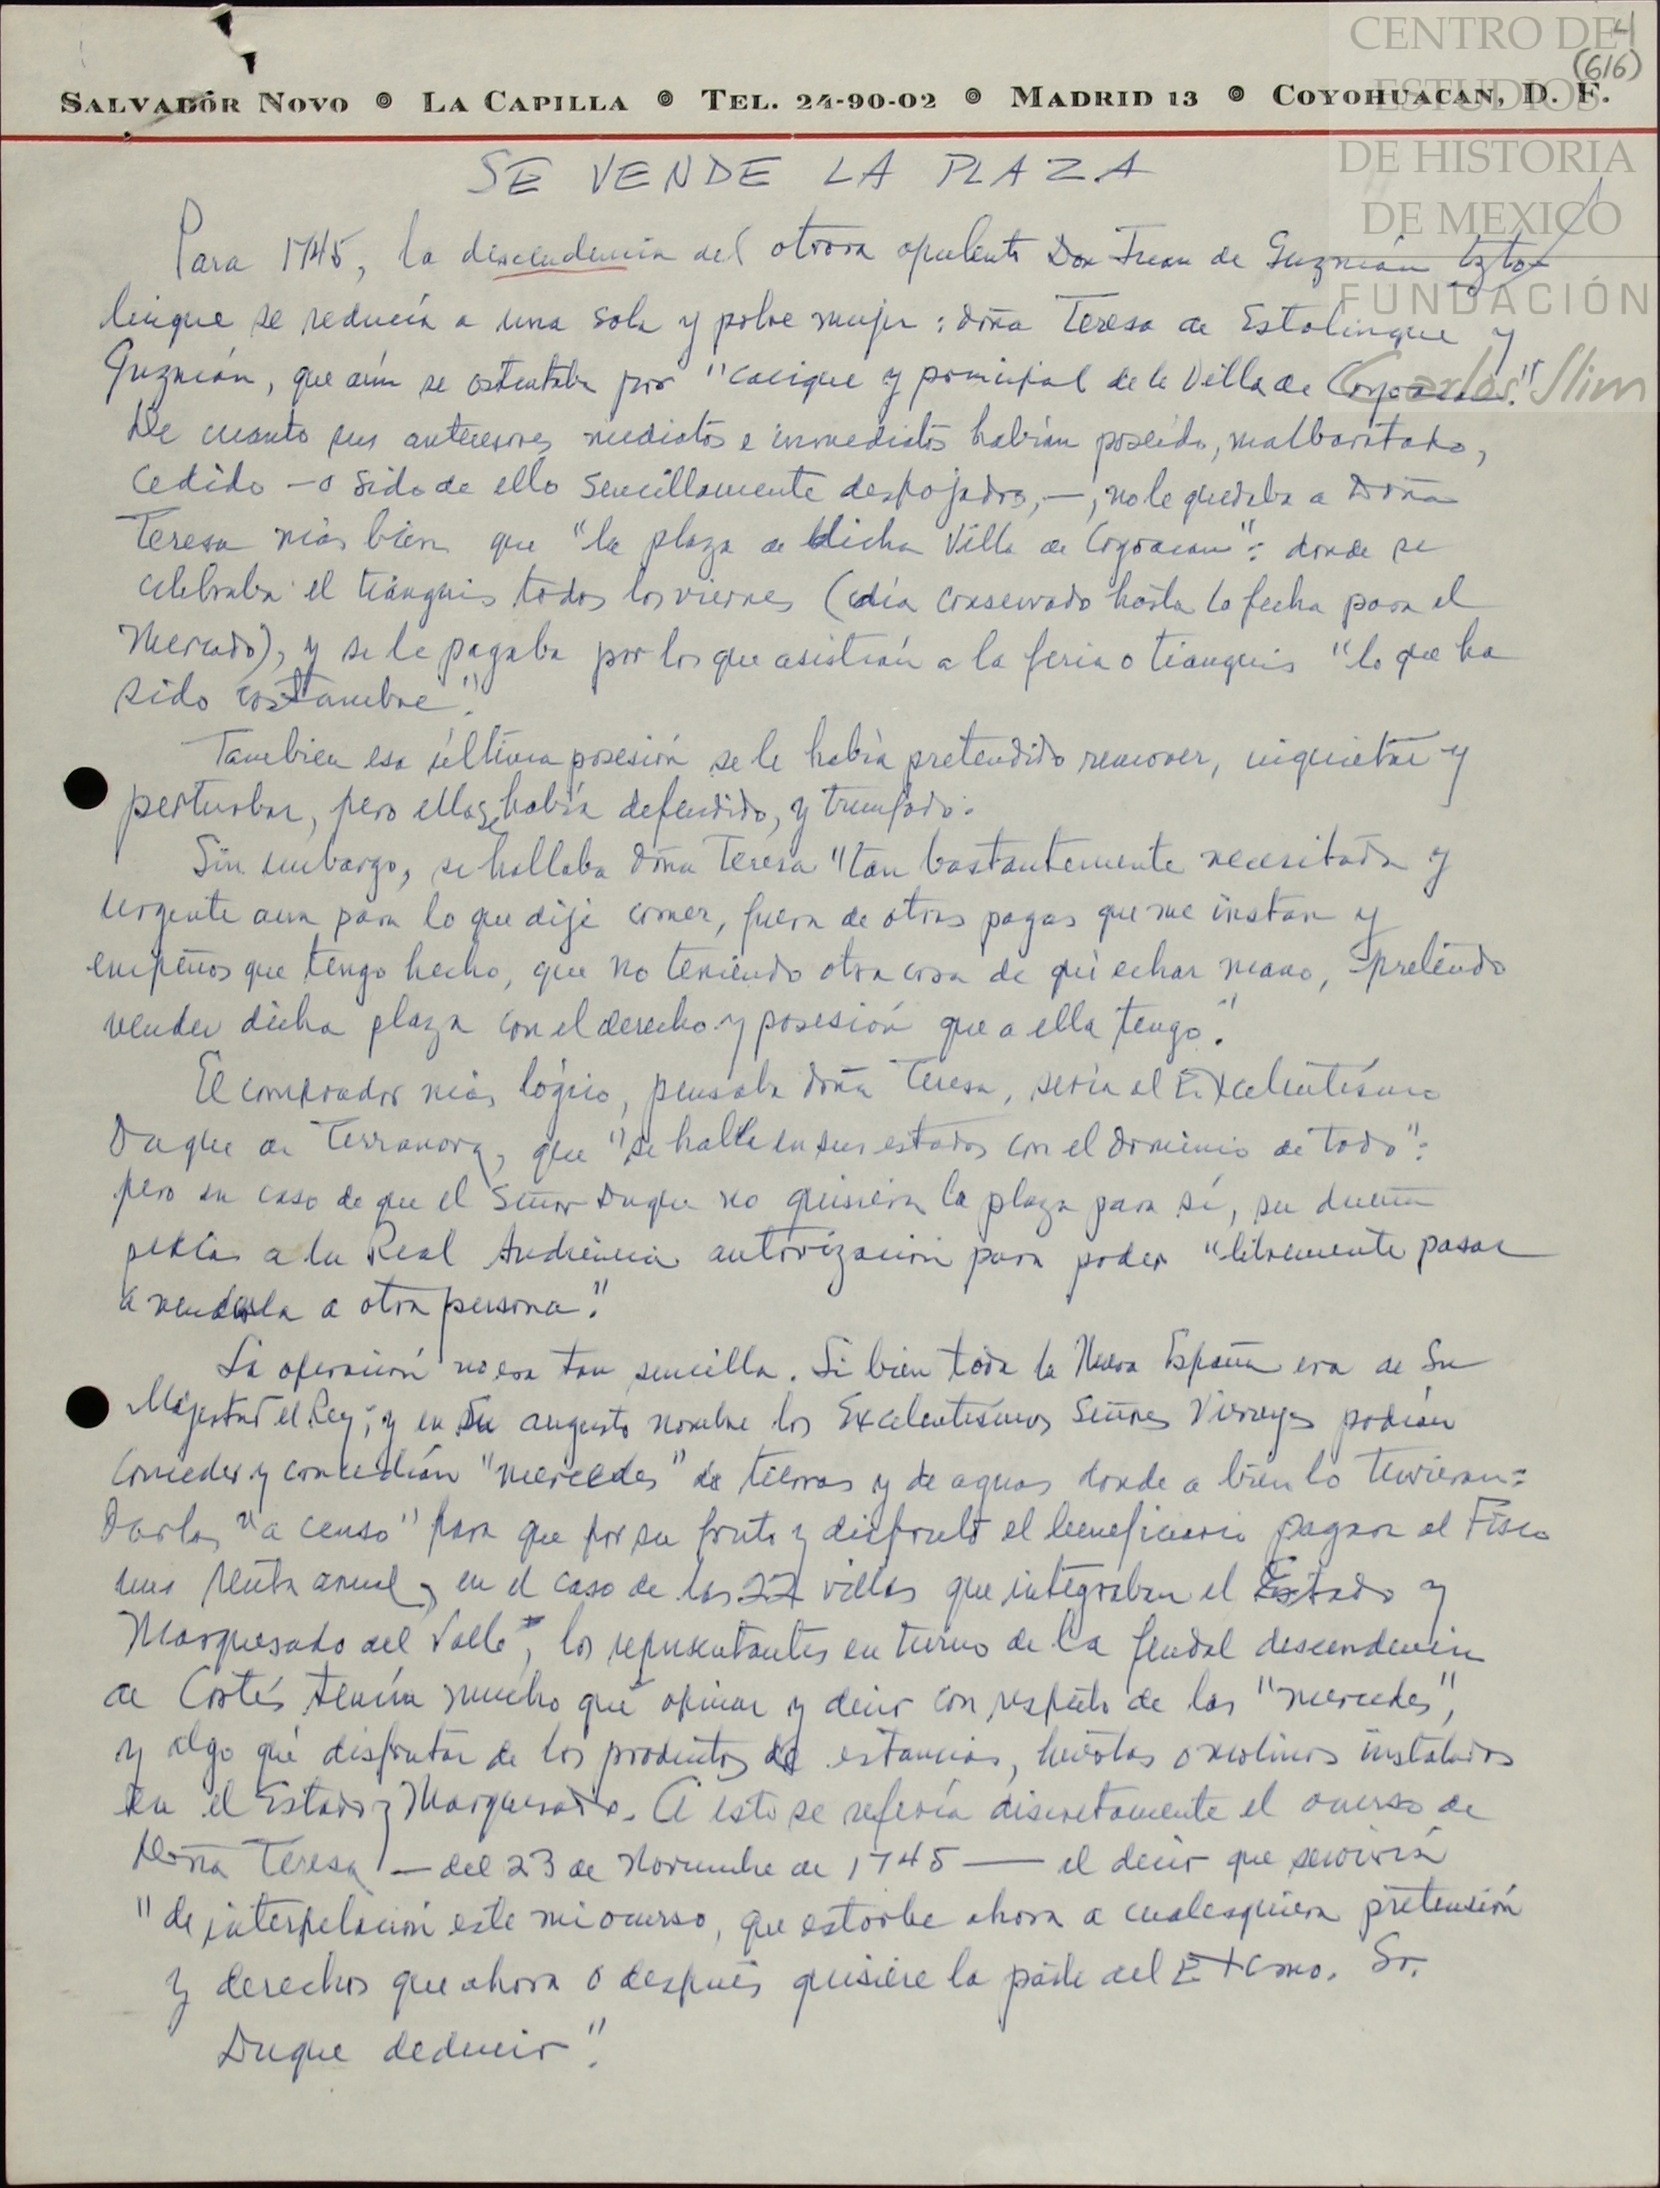 CENTRO DE
ESTUDIOS
DE HISTORIA
DE MEXICO
FUNDACIÓN
Carlos Slim
4
(616)
SALVADOR NOVO ⊚ LA CAPILLA ⊚ TEL. 24-90-02 ⊚ MADRID 13 ⊚ COYOHUACAN, D. F.
SE VENDE LA PLAZA
Para 1745, la descendencia del otrora opulento Don Juan de Guzmán Izto-
linque se reducía a una sola y pobre mujer: doña Teresa de Estolinque y
Guzmán, que aún se ostentaba por "cacique y principal de la Villa de Coyoacan".
De cuanto sus antecesores mediatos e inmediatos habían poseído, malbaratado,
cedido —o sido de ello sencillamente despojados,—, no le quedaba a Doña
Teresa más bien que "la plaza de dicha Villa de Coyoacan": donde se
celebraba el tianguis todos los viernes (día conservado hasta la fecha para el
Mercado), y se le pagaba por los que asistían a la feria o tianguis "lo que ha
sido costumbre".
Tambien esa última posesión se le había pretendido remover, inquietar y
perturbar, pero ella se había defendido, y triunfado.
Sin embargo, se hallaba doña Teresa "tan bastantemente necesitada y
urgente aun para lo que dije comer, fuera de otras pagas que me instan y
empeños que tengo hecho, que no teniendo otra cosa de qué echar mano, pretendo
vender dicha plaza con el derecho y posesión que a ella tengo".
El comprador más lógico, pensaba doña Teresa, sería el Excelentísimo
Duque de Terranova, que "se halla en sus estados con el dominio de todo":
pero en caso de que el Señor Duque no quisiera la plaza para sí, su dueña
pedía a la Real Audiencia autorización para poder "libremente pasar
a venderla a otra persona".
La operación no era tan sencilla. Si bien toda la Nueva España era de Su
Majestad el Rey; y en Su augusto nombre los Excelentísimos Señores Virreyes podían
conceder y concedían "mercedes" de tierras y de aguas donde a bien lo tuvieran:
Darlas "a censo" para que por su fruto y disfrute el beneficiario pagara al Fisco
una renta anual, en el caso de las 22 villas que integraban el Estado y
Marquesado del Valle, los representantes en turno de la feudal descendencia
de Cortés tenían mucho qué opinar y decir con respecto de las "mercedes",
y algo qué disfrutar de los productos de estancias, huertas o molinos instalados
en el Estado y Marquesado. A esto se refería discretamente el ocurso de
Doña Teresa —del 23 de Noviembre de 1745— al decir que serviría
"de interpelación este mi ocurso, que estorbe ahora a cualesquiera pretensión
y derechos que ahora o después quisiere la parte del Excmo. Sr.
Duque deducir".